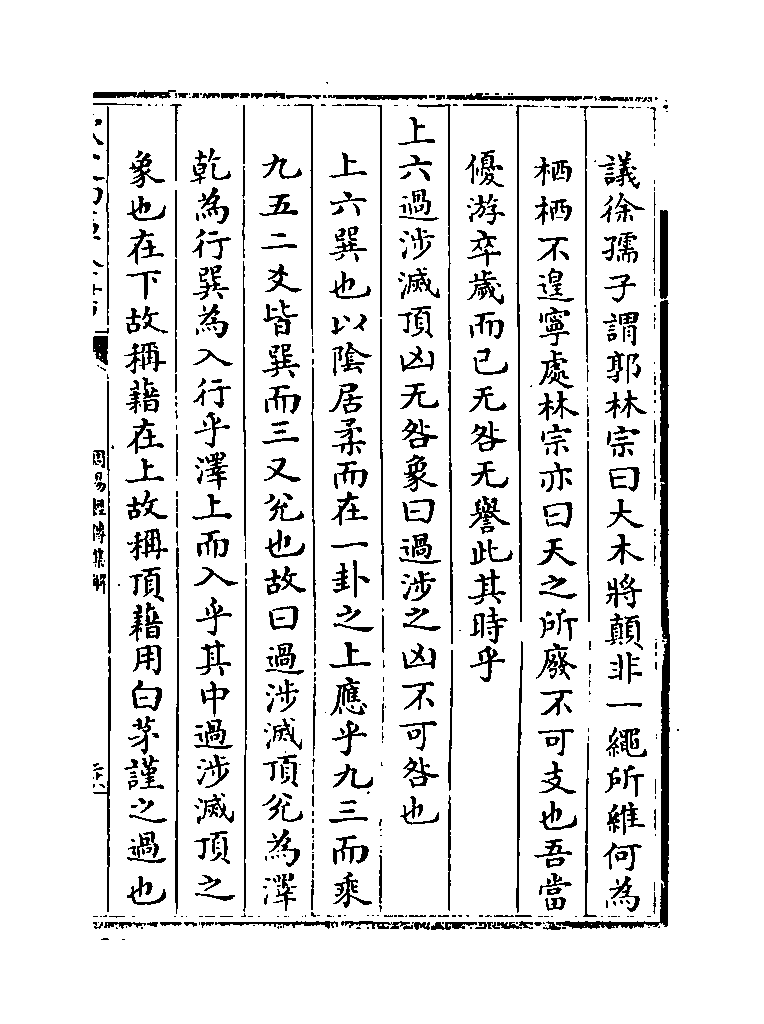 議徐孺子謂郭林宗曰大木將顛非一繩所維何為
栖栖不遑寧處林宗亦曰天之所廢不可支也吾當
優游卒歲而已无咎无譽此其時乎
上六過涉滅頂凶无咎象曰過涉之凶不可咎也
上六巽也以陰居柔而在一卦之上應乎九三而乘
九五二爻皆巽而三又兊也故曰過涉滅頂兊為澤
乾為行巽為入行乎澤上而入乎其中過涉滅頂之
象也在下故稱藉在上故稱頂藉用白茅謹之過也
周易經傳集解